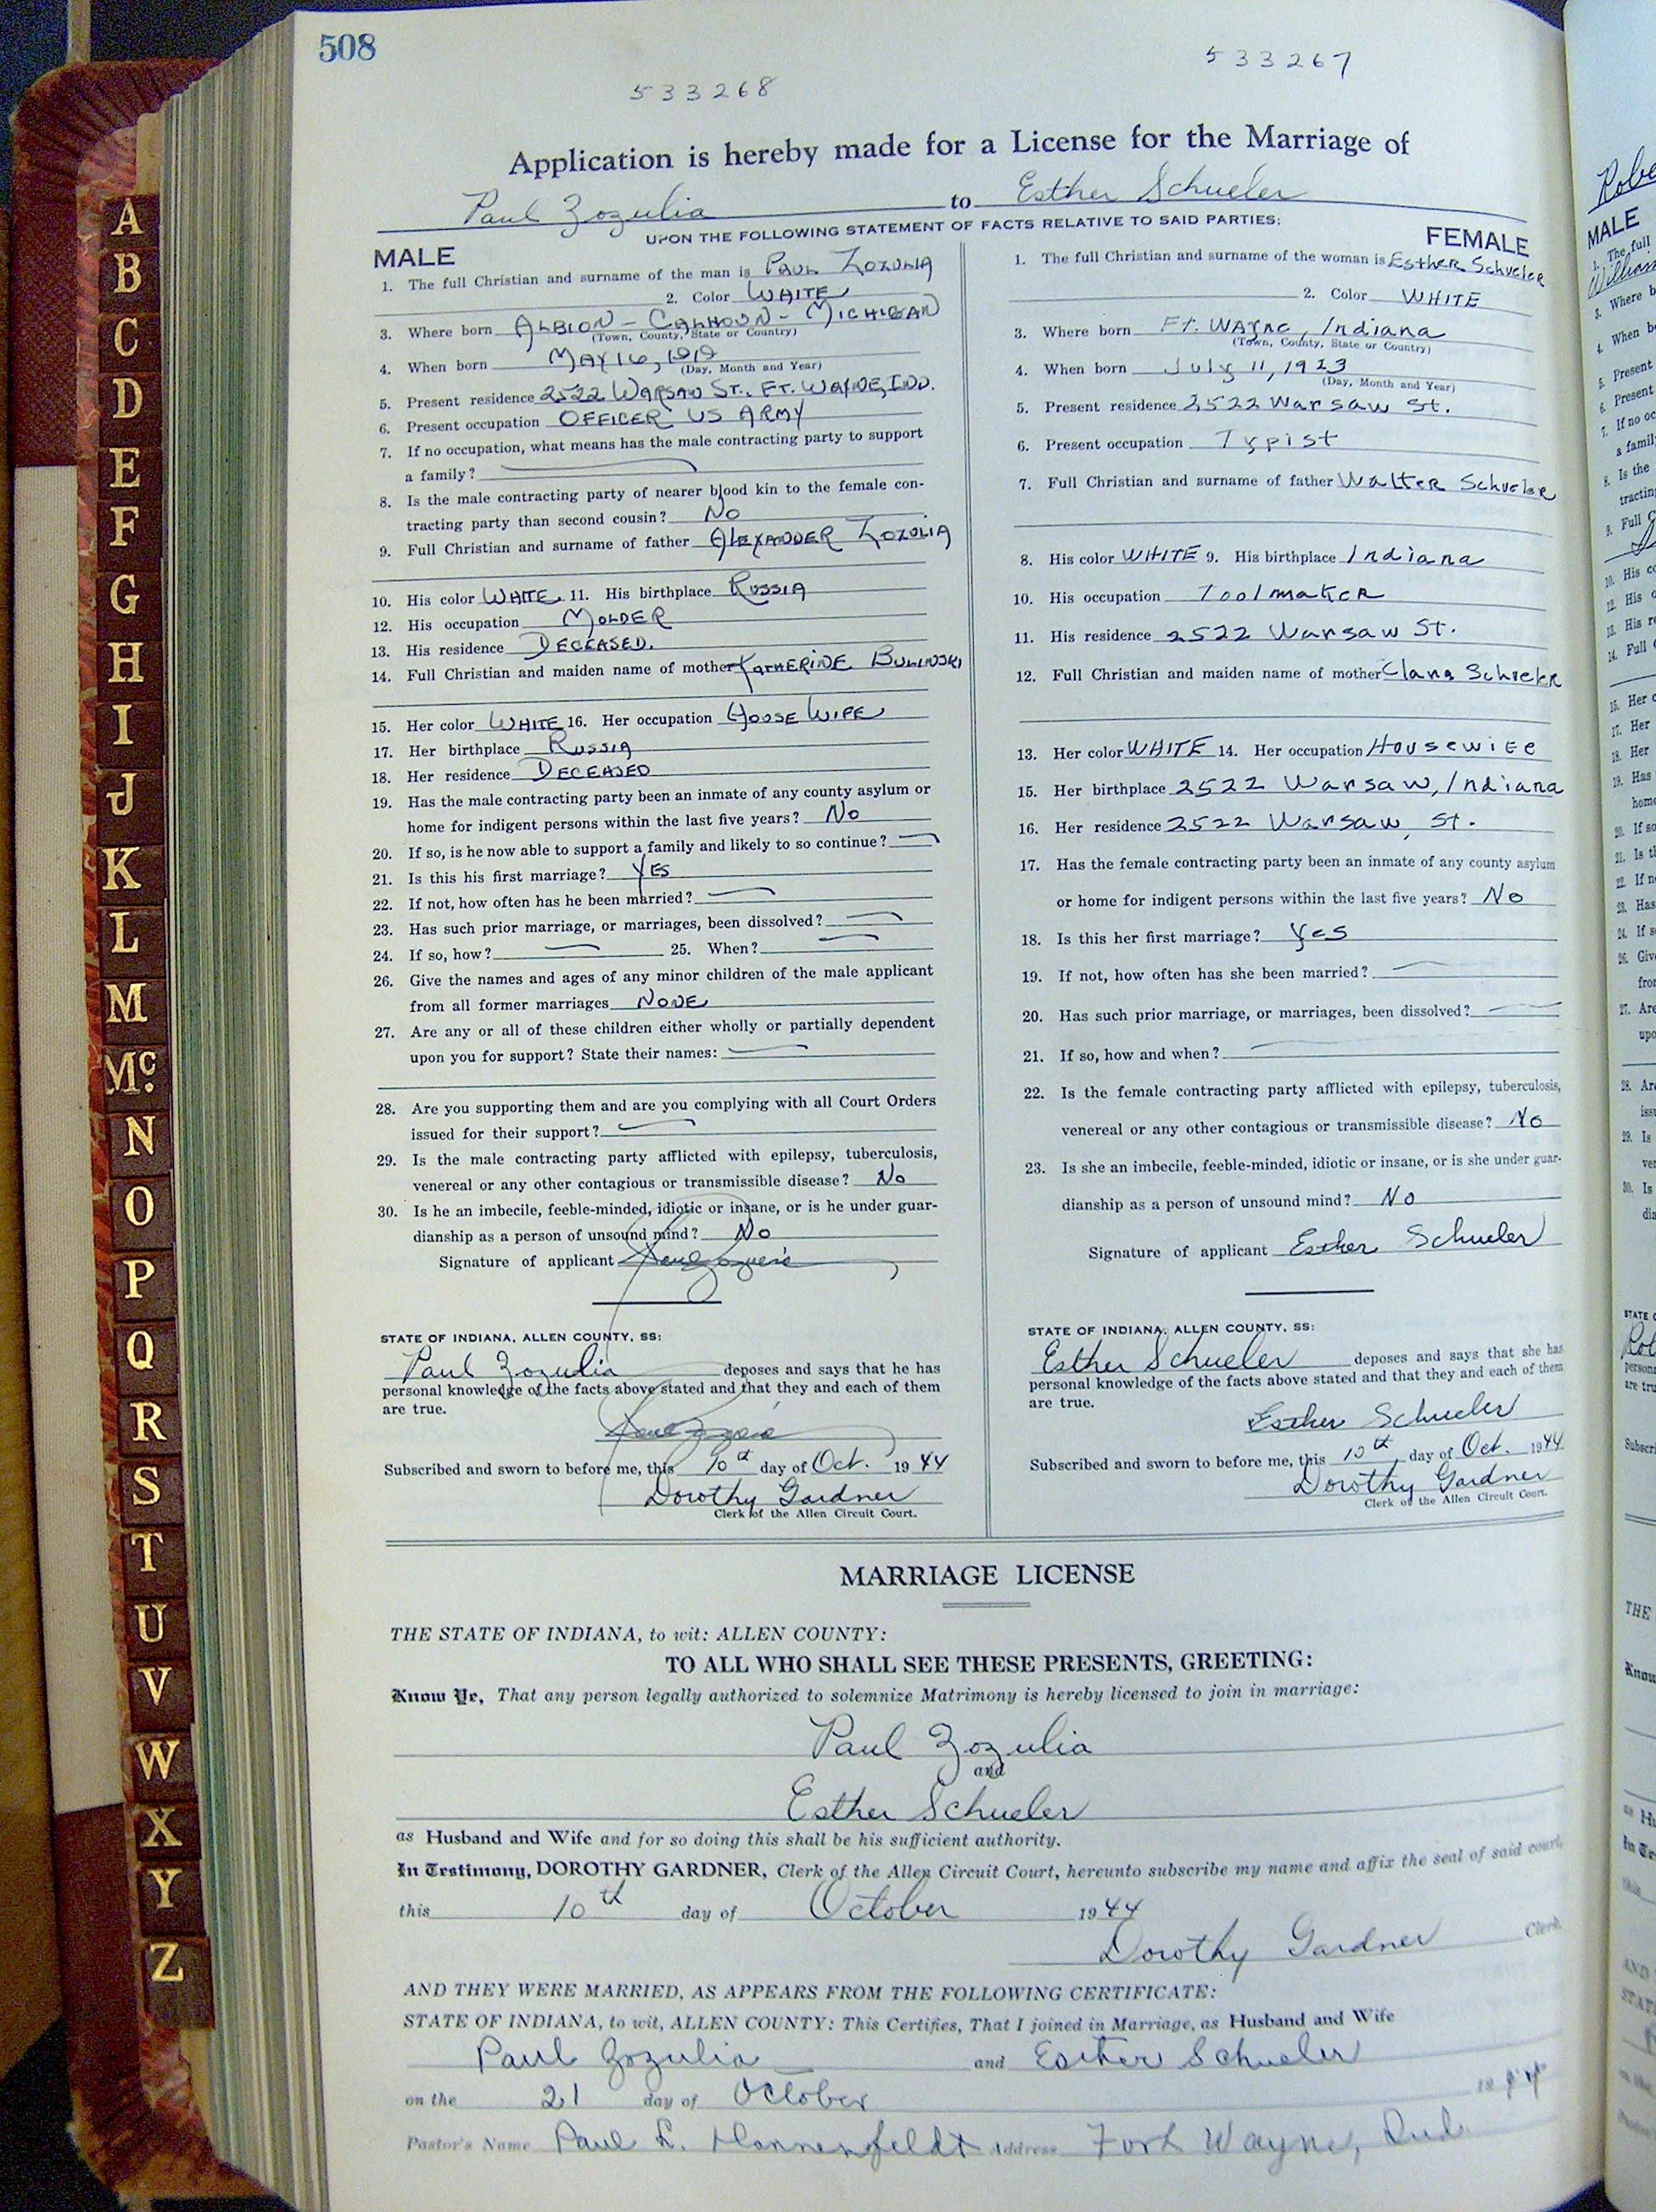 508
533268
533267
Application is hereby made for a License for the Marriage of
Paul Zozulia to Esther Schueler
UPON THE FOLLOWING STATEMENT OF FACTS RELATIVE TO SAID PARTIES:
MALE
1. The full Christian and surname of the man is PAUL ZOZULIA
2. Color WHITE
3. Where born ALBION - CALHOUN - MICHIGAN
(Town, County, State or Country)
4. When born MAY 16, 1919
(Day, Month and Year)
5. Present residence 2522 WARSAW ST., FT. WAYNE, IND.
6. Present occupation OFFICER US ARMY
7. If no occupation, what means has the male contracting party to support
a family?
8. Is the male contracting party of nearer blood kin to the female con-
tracting party than second cousin? No
9. Full Christian and surname of father ALEXANDER ZOZULIA
10. His color WHITE 11. His birthplace RUSSIA
12. His occupation MOLDER
13. His residence DECEASED.
14. Full Christian and maiden name of mother KATHERINE BULINSKI
15. Her color WHITE 16. Her occupation HOUSE WIFE
17. Her birthplace RUSSIA
18. Her residence DECEASED
19. Has the male contracting party been an inmate of any county asylum or
home for indigent persons within the last five years? No
20. If so, is he now able to support a family and likely to so continue?
21. Is this his first marriage? YES
22. If not, how often has he been married?
23. Has such prior marriage, or marriages, been dissolved?
24. If so, how? 25. When?
26. Give the names and ages of any minor children of the male applicant
from all former marriages NONE
27. Are any or all of these children either wholly or partially dependent
upon you for support? State their names:
28. Are you supporting them and are you complying with all Court Orders
issued for their support?
29. Is the male contracting party afflicted with epilepsy, tuberculosis,
venereal or any other contagious or transmissible disease? No
30. Is he an imbecile, feeble-minded, idiotic or insane, or is he under guar-
dianship as a person of unsound mind? No
Signature of applicant Paul Zozulia
STATE OF INDIANA, ALLEN COUNTY, SS:
Paul Zozulia deposes and says that he has
personal knowledge of the facts above stated and that they and each of them
are true.
Paul Zozulia
Subscribed and sworn to before me, this 10th day of Oct. 1944
Dorothy Gardner
Clerk of the Allen Circuit Court.
FEMALE
1. The full Christian and surname of the woman is Esther Schueler
2. Color WHITE
3. Where born Ft. Wayne, Indiana
(Town, County, State or Country)
4. When born July 11, 1923
(Day, Month and Year)
5. Present residence 2522 Warsaw St.
6. Present occupation Typist
7. Full Christian and surname of father Walter Schueler
8. His color WHITE 9. His birthplace Indiana
10. His occupation Toolmaker
11. His residence 2522 Warsaw St.
12. Full Christian and maiden name of mother Clara
13. Her color WHITE 14. Her occupation Housewife
15. Her birthplace 2522 Warsaw, Indiana
16. Her residence 2522 Warsaw, St.
17. Has the female contracting party been an inmate of any county asylum
or home for indigent persons within the last five years? No
18. Is this her first marriage? Yes
19. If not, how often has she been married?
20. Has such prior marriage, or marriages, been dissolved?
21. If so, how and when?
22. Is the female contracting party afflicted with epilepsy, tuberculosis,
venereal or any other contagious or transmissible disease? No
23. Is she an imbecile, feeble-minded, idiotic or insane, or is she under guar-
dianship as a person of unsound mind? No
Signature of applicant Esther Schueler
STATE OF INDIANA, ALLEN COUNTY, SS:
Esther Schueler deposes and says that she has
personal knowledge of the facts above stated and that they and each of them
are true.
Esther Schueler
Subscribed and sworn to before me, this 10th day of Oct. 1944
Dorothy Gardner
Clerk of the Allen Circuit Court.
MARRIAGE LICENSE
THE STATE OF INDIANA, to wit: ALLEN COUNTY:
TO ALL WHO SHALL SEE THESE PRESENTS, GREETING:
Know Ye, That any person legally authorized to solemnize Matrimony is hereby licensed to join in marriage:
Paul Zozulia
and
Esther Schueler
as Husband and Wife and for so doing this shall be his sufficient authority.
In Testimony, DOROTHY GARDNER, Clerk of the Allen Circuit Court, hereunto subscribe my name and affix the seal of said court,
this 10th day of October 1944
Dorothy Gardner Clerk
AND THEY WERE MARRIED, AS APPEARS FROM THE FOLLOWING CERTIFICATE:
STATE OF INDIANA, to wit, ALLEN COUNTY: This Certifies, That I joined in Marriage, as Husband and Wife
Paul Zozulia and Esther Schueler
on the 21 day of October 1944
Pastor's Name Paul L. Address Fort Wayne, Ind.
A
B
C
D
E
F
G
H
I
J
K
L
M
Mc.
N
O
P
Q
R
S
T
U
V
W
X
Y
Z